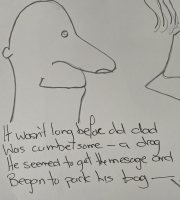 It wasn't long before old dad
Was cumbersome – a drag
He seemed to get the message and
Began to pack his bag —